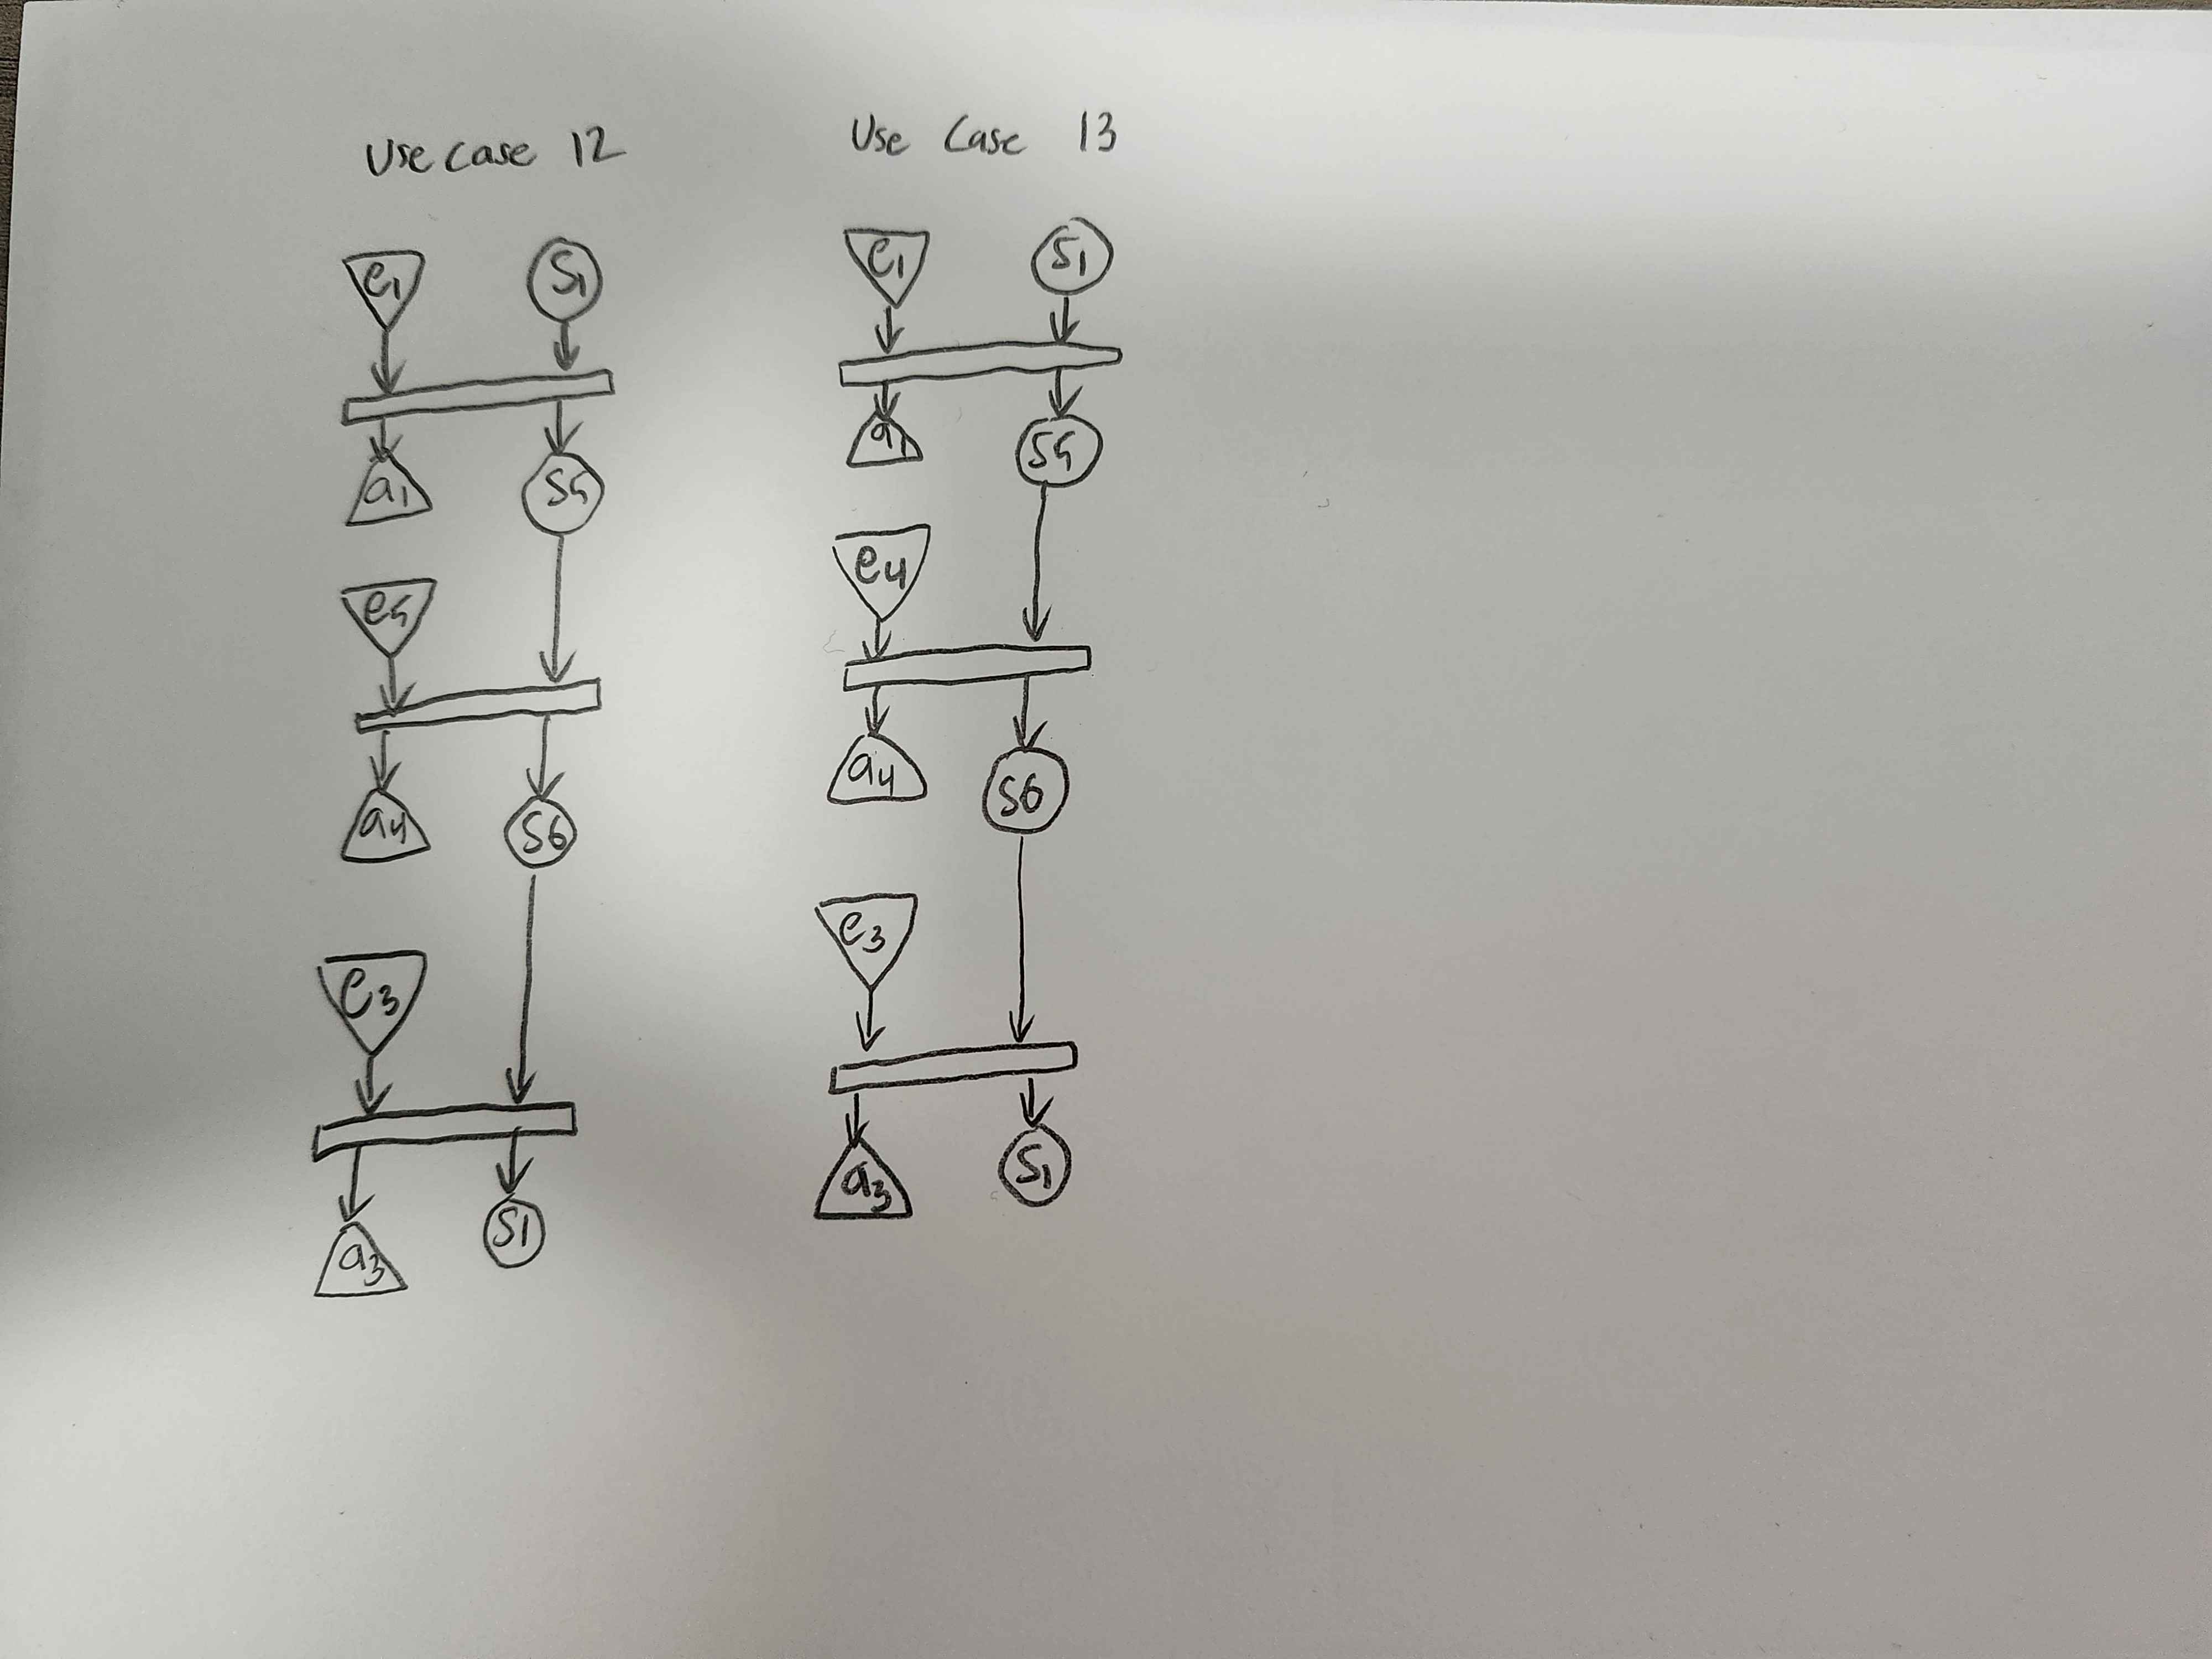 Use case 12
e1 S1
a1 S5
e5
a4 S6
e3
a3 S1
Use Case 13
e1 S1
a1 S5
e4
a4 S6
e3
a3 S1